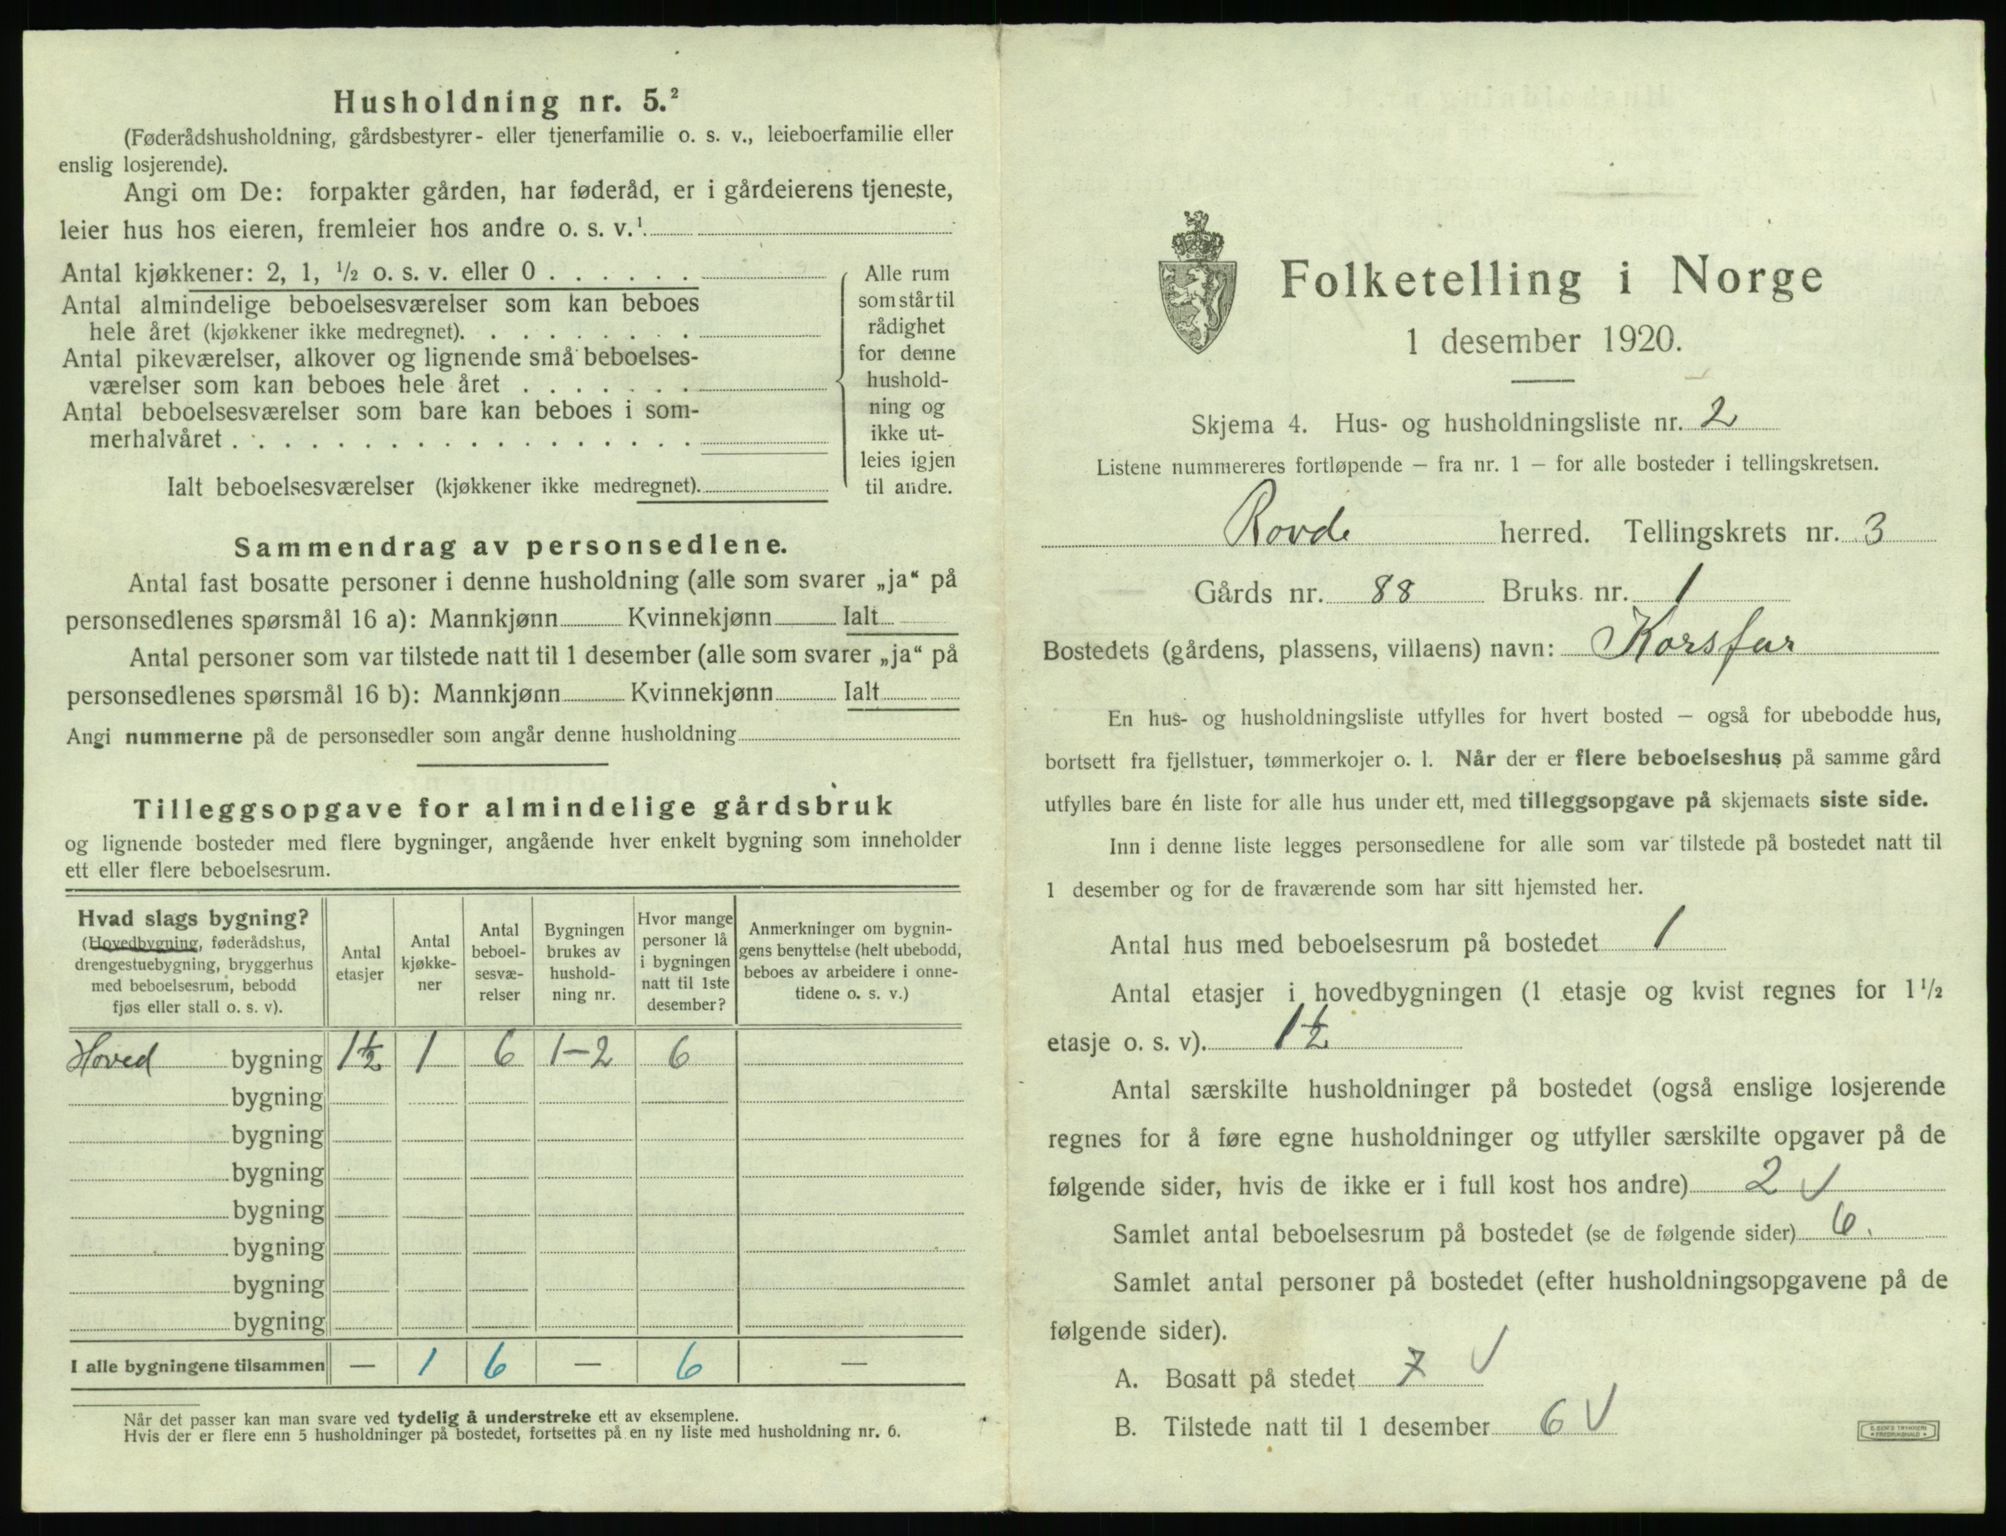 Husholdning nr. 5.²
(Føderådshusholdning, gårdsbestyrer- eller tjenerfamilie o. s. v., leieboerfamilie eller
enslig losjerende).
Angi om De: forpakter gården, har føderåd, er i gårdeierens tjeneste,
leier hus hos eieren, fremleier hos andre o. s. v.¹
Antal kjøkkener: 2, 1, ½ o. s. v. eller 0 . . . . . .
Antal almindelige beboelsesværelser som kan beboes
hele året (kjøkkener ikke medregnet). . . . . . . . .
Antal pikeværelser, alkover og lignende små beboelses-
værelser som kan beboes hele året . . . . . . .
Antal beboelsesværelser som bare kan beboes i som-
merhalvåret . . . . . . . . . . . . . . . . . .
Ialt beboelsesværelser (kjøkkener ikke medregnet).
Alle rum
som står til
rådighet
for denne
hushold-
ning og
ikke ut-
leies igjen
til andre.
Sammendrag av personsedlene.
Antal fast bosatte personer i denne husholdning (alle som svarer „ja“ på
personsedlenes spørsmål 16 a): Mannkjønn Kvinnekjønn Ialt
Antal personer som var tilstede natt til 1 desember (alle som svarer „ja“ på
personsedlenes spørsmål 16 b): Mannkjønn Kvinnekjønn Ialt
Angi nummerne på de personsedler som angår denne husholdning
Tilleggsopgave for almindelige gårdsbruk
og lignende bosteder med flere bygninger, angående hver enkelt bygning som inneholder
ett eller flere beboelsesrum.
Hvad slags bygning?
(Hovedbygning, føderådshus,
drengestuebygning, bryggerhus
med beboelsesrum, bebodd
fjøs eller stall o. s. v).
Antal
etasjer
Antal
kjøkke-
ner
Antal
beboel-
sesvæ-
relser
Bygningen
brukes av
hushold-
ning nr.
Hvor mange
personer lå
i bygningen
natt til 1ste
desember?
Anmerkninger om bygnin-
gens benyttelse (helt ubebodd,
beboes av arbeidere i onne-
tidene o. s. v.)
Hoved bygning 1½ 1 6 1-2 6
bygning
bygning
bygning
bygning
bygning
bygning
bygning
I alle bygningene tilsammen — 1 6 — 6 —
Når det passer kan man svare ved tydelig å understreke ett av eksemplene.
Hvis der er flere enn 5 husholdninger på bostedet, fortsettes på en ny liste med husholdning nr. 6.
Folketelling i Norge
1 desember 1920.
Skjema 4. Hus- og husholdningsliste nr. 2
Listene nummereres fortløpende — fra nr. 1 — for alle bosteder i tellingskretsen.
Rovde herred. Tellingskrets nr. 3
Gårds nr. 88 Bruks nr. 1
Bostedets (gårdens, plassens, villaens) navn: Korsfur
En hus- og husholdningsliste utfylles for hvert bosted — også for ubebodde hus,
bortsett fra fjellstuer, tømmerkojer o. l. Når der er flere beboelseshus på samme gård
utfylles bare én liste for alle hus under ett, med tilleggsopgave på skjemaets siste side.
Inn i denne liste legges personsedlene for alle som var tilstede på bostedet natt til
1 desember og for de fraværende som har sitt hjemsted her.
Antal hus med beboelsesrum på bostedet 1
Antal etasjer i hovedbygningen (1 etasje og kvist regnes for 1½
etasje o. s. v). 1½
Antal særskilte husholdninger på bostedet (også enslige losjerende
regnes for å føre egne husholdninger og utfyller særskilte opgaver på de
følgende sider, hvis de ikke er i full kost hos andre) 2 ✓
Samlet antal beboelsesrum på bostedet (se de følgende sider) 6.
Samlet antal personer på bostedet (efter husholdningsopgavene på de
følgende sider).
A. Bosatt på stedet 7 ✓
B. Tilstede natt til 1 desember 6 ✓